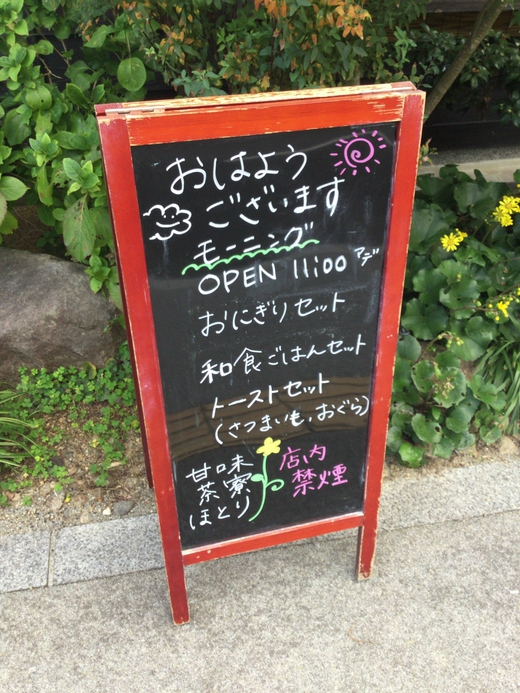 おはよう
ございます
モーニング
OPEN 11:00 マデ
おにぎりセット
和食ごはんセット
トーストセット
(さつまいも,おぐら)
甘味
茶寮
ほとり
店内
禁煙